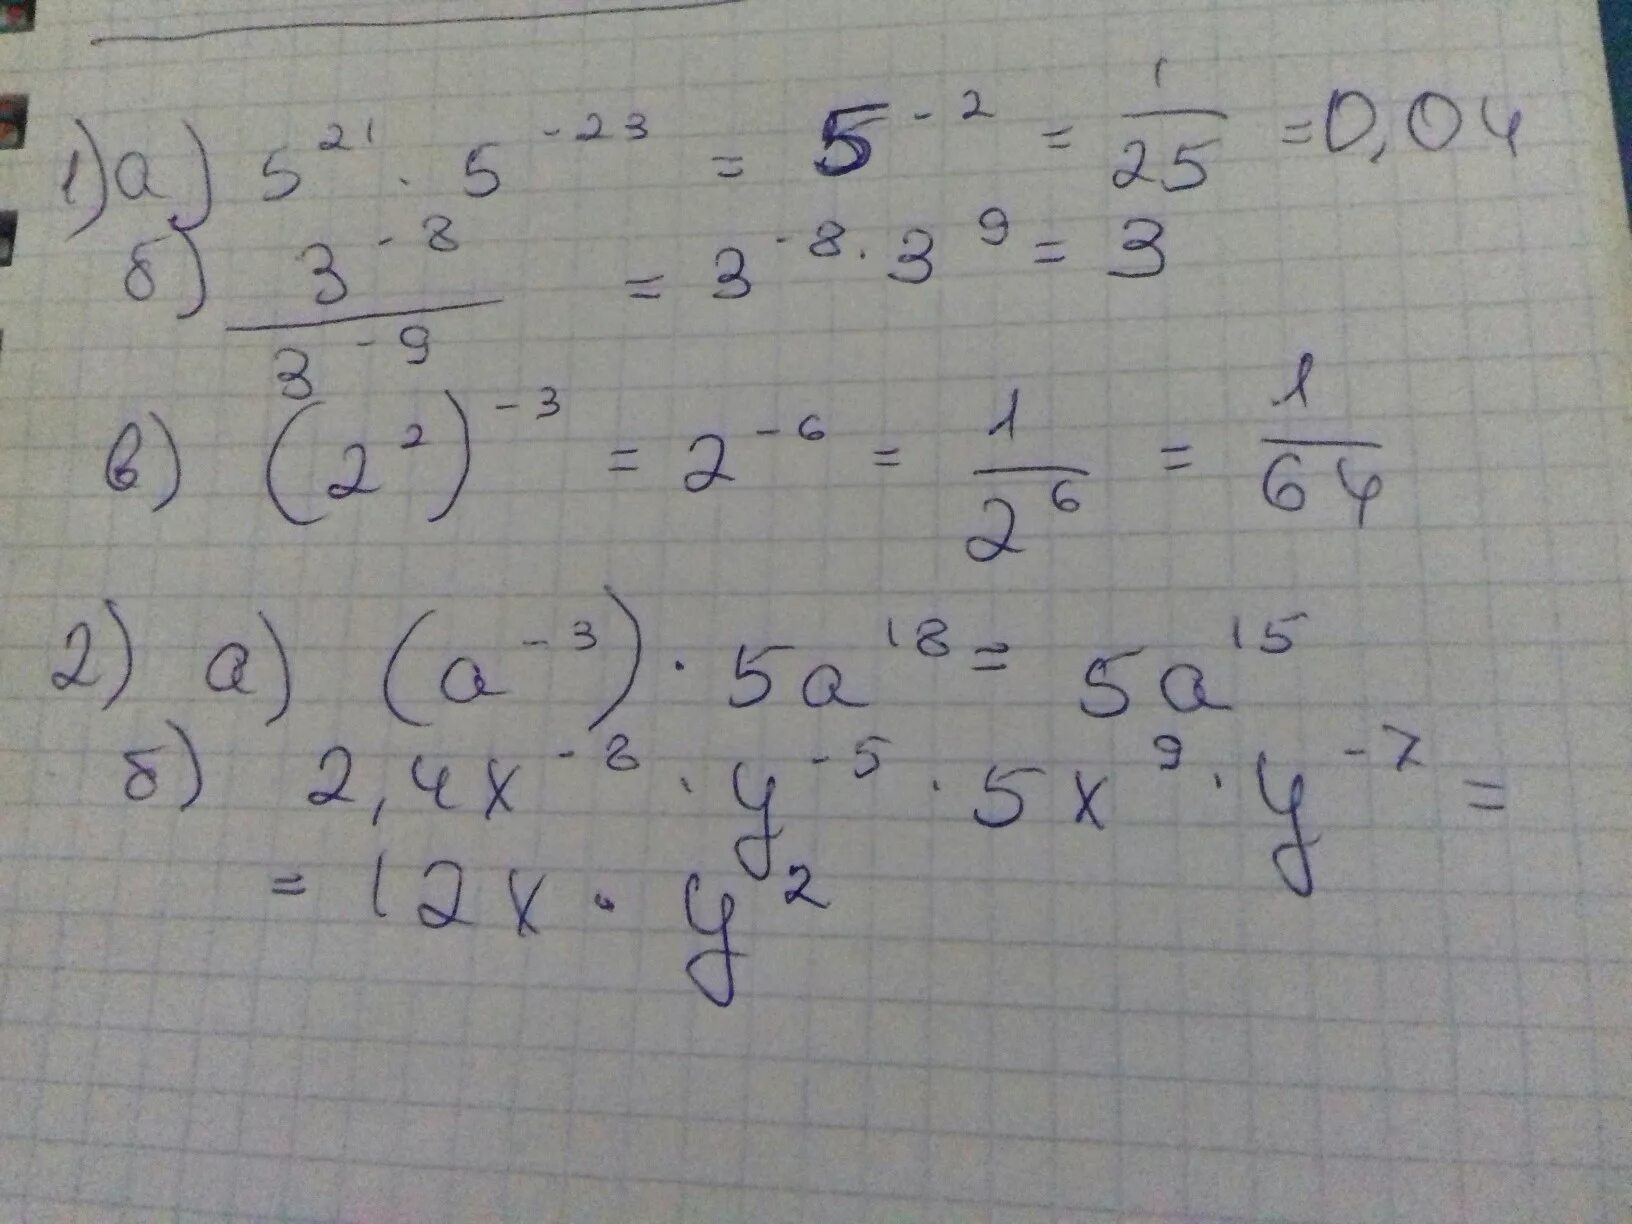 1) а) 5^21 · 5^-23 = 5^-2 = 1/25 = 0,04
б) 3^-8/3^-9 = 3^-8 · 3^9 = 3
в) (2^2)^-3 = 2^-6 = 1/2^6 = 1/64
2) а) (a^-3) · 5a^18 = 5a^15
б) 2,4x^-8 · y^-5 · 5x^9 · y^-7 =
= 12x · y^2